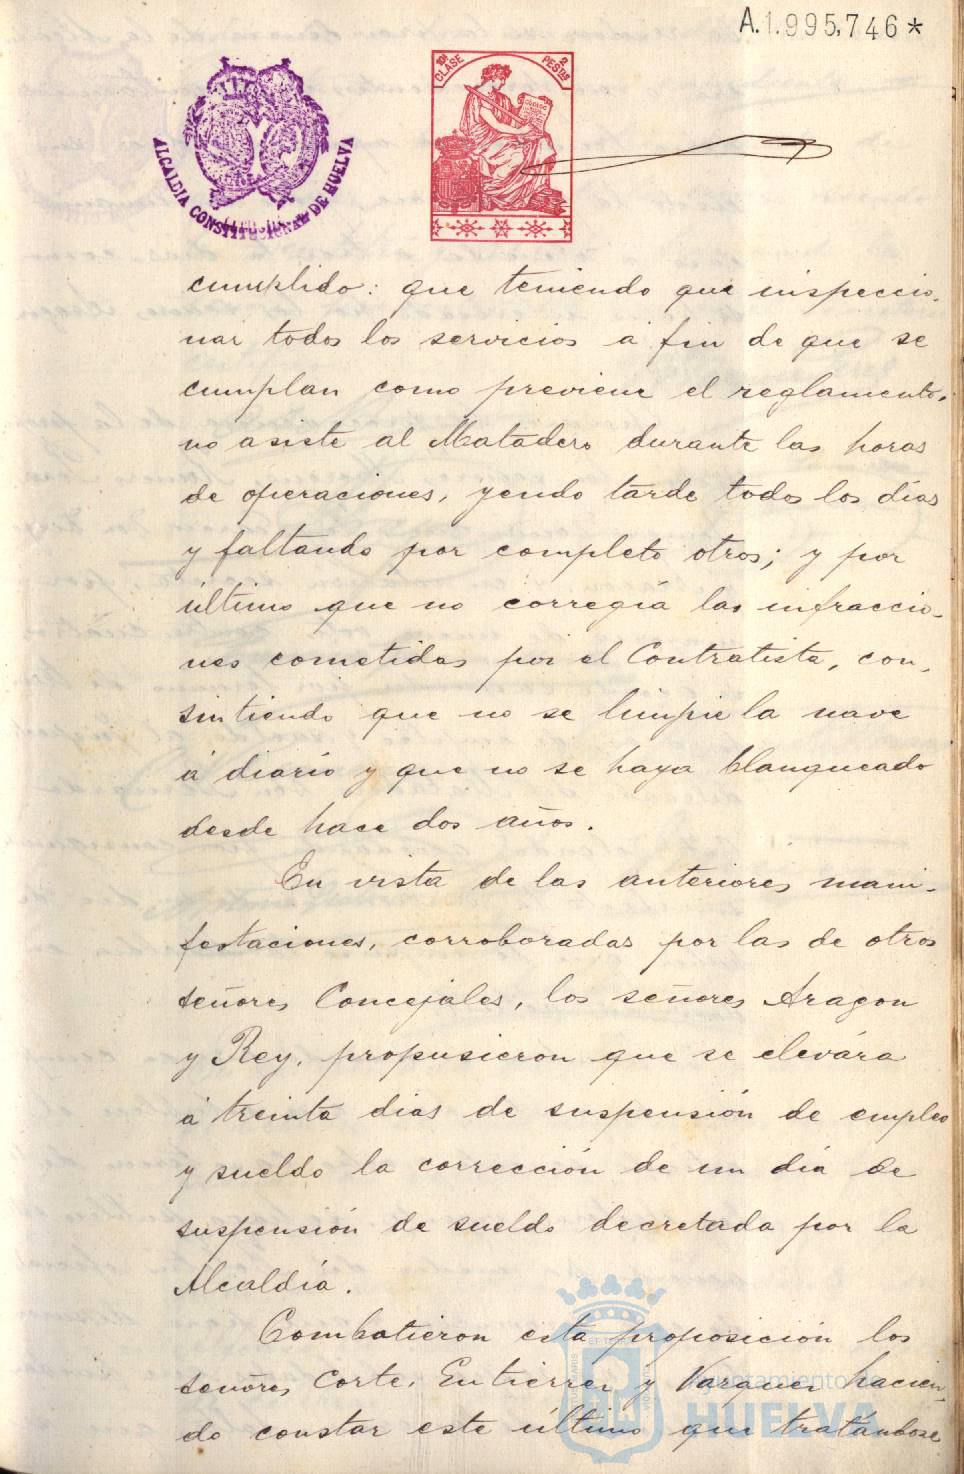 A.1.995,746*
10ª CLASE 2 PESTAS
ALCALDIA CONSTITUCIONAL DE HUELVA
cumplido: que teniendo que inspeccio-
nar todos los servicios á fin de que se
cumplan como previene el reglamento,
no asiste al Matadero durante las horas
de operaciones, yendo tarde todos los días
y faltando por completo otros; y por
último que no corregía las infraccio-
nes cometidas por el Contratista, con-
sintiendo que no se limpie la nave
á diario y que no se haya blanqueado
desde hace dos años.
En vista de las anteriores mani-
festaciones, corroboradas por las de otros
señores Concejales, los señores Aragon
y Rey, propusieron que se elevára
á treinta dias de suspensión de empleo
y sueldo la corrección de un día de
suspensión de sueldo decretada por la
Alcaldía.
Combatieron esta proposición los
señores Corte, Gutierrez y Vazquez hacien-
do constar este último que tratándose
Ayuntamiento de
HUELVA